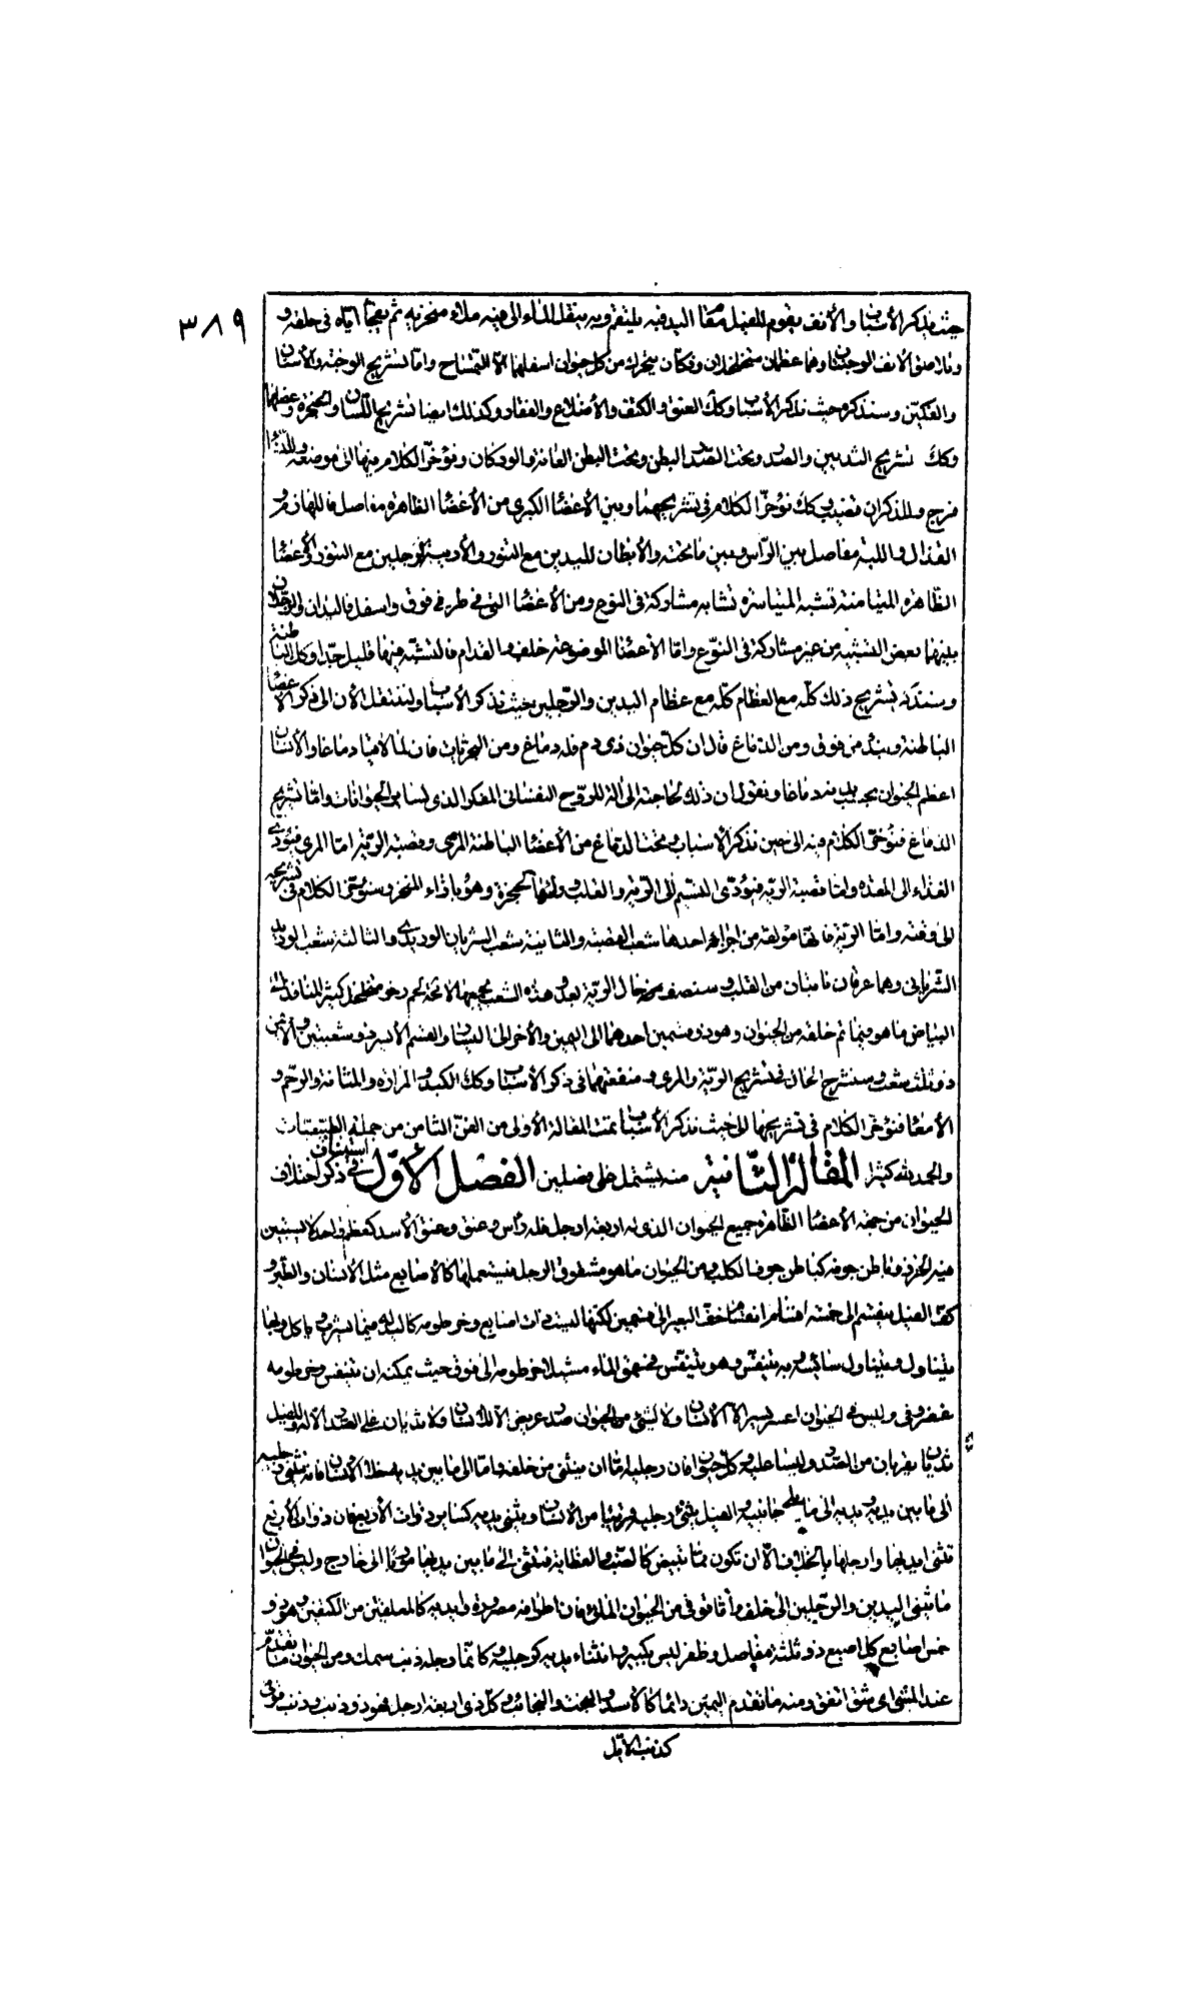 ٣٨٩
حيث نذكر الأسباب والأنف يقوم للفيل مقام اليد فبه يلتقم وبه ينقل الماء الى فيه ملاء منخريه ثم يمجّا اياه في حلقه و
الأنف الوجنتان وهما عظمان متخلخلان وفكان يتحرك من كل حيوان اسفلهما الا التمساح واما تشريح الوجنة والأسنان
والفكين وسنذكره حيث نذكر الأسباب وكك العنق والكتف والأضلاع والفقار وكذلك ايضا تشريح اللسان والحنجرة وعضلها
وكك تشريح الثديين والصدر وتحت الصدر البطن وتحت البطن العانة والوركان ونؤخر الكلام فيها الى موضعه وللنساء
فرج وللذكران قضيب وكك نؤخر الكلام في تشريحهما وبين الأعضا الكبرى من الأعضا الظاهرة مفاصل فاللهازم و
القذال واللبة مفاصل بين الرأس وبين ما تحته والأبطان لليدين مع التنور والأربية للرجلين مع التنور والأعضا
الظاهرة المتيامنة تشبه المتياسرة تشابه مشاركة في النوع ومن الأعضا التي في طرفي فوق واسفل فاليدان والرجلان
بينهما بعض التشبيه من غير مشاركة في النوع واما الأعضا الموضوعة خلف والقدام فالتشبه فيها قليل جدا وكك الباطنة
وسنتدارك تشريح ذلك كله مع العظام كله مع عظام اليدين والرجلين بحيث نذكر الأسباب ولننتقل الأن الى ذكر الأعضا
الباطنة ونبتدئ من فوق ومن الدماغ قال ان كل حيوان ذي دم فله دماغ ومن البحريات فان لمالاقيا دماغا والأنسان
اعظم الحيوان بحسب بدنه دماغا ونقول ان ذلك لحاجته الى آلة للروح النفسانى المفكر الذي ليس لساير الحيوانات واما تشريح
الدماغ فنؤخر الكلام فيه الى حين نذكر الأسباب وتحت الدماغ من الأعضا الباطنة المرى وقصبة الرية اما المرى فيؤدي
الغذاء الى المعدة واما قصبة الرية فيؤدى النسيم الى الرية والقلب ولها الحنجرة وهو بازاء المنخر وسنؤخر الكلام في تشريحه
الى وقته واما الرية فانها مؤلفة من اجزاء احدها شعب القصبة والثانية شعب الشريان الوريدي والثالثة شعب الوريد
الشرياني وهما عرقان نابتان من القلب وسنصف حال الرية بعد وهذه الشعب يجمعها لا محة لحم رخو متخلخل كثير المنافذ الى
البياض ما هو فيما تم خلقه من الحيوان وهو ذو قسمين احدهما الى اليمين والأخر الى اليسار والقسم الأيسر ذو شعبتين والأيمن
ذو ثلث شعب وسنشرح الحال في تشريح الرية والمرى ومنفعتهما في ذكر الأسباب وكك الكبد والمرارة والمثانة والرحم و
الأمعا فنؤخر الكلام في تشريحها الى حيث نذكر الأسباب تمت المقالة الأولى من الفن الثامن من جملة الطبيعيات
والحمد لله كثيرا المقالة الثانية منه يشتمل على فصلين الفصل الأول في استيناف ذكر اختلاف
الحيوان من جهة الأعضا الظاهرة جميع الحيوان الذي له اربعة ارجل فله رأس وعنق وعنق الأسد كعظم واحد لا يستبين
فيه الخرز وباطن جوفه كباطن جوف الكلب ومن الحيوان ما هو مشقوق الرجل فيستعملها كالأصابع مثل الأنسان والقرد و
كف الفيل ينقسم الى خمسة اقسام انقسام خف البعير الى قسمين لكنها ليست ذات اصابع وخرطومه كاليد له فيما يشرب و يأكل وبها
يتناول ويتناول سائسه وبه يتنفس وهو يتنفس في عمق الماء مشيلا خرطومه الى فوق حيث يمكنه ان يتنفس وخرطومه
غضروفي وليس في الحيوان اعسر يسر الا الأنسان ولا لشئ من الحيوان صدر عريض الا للأنسان ولا ثديان على الصدر الا له وللفيل
ثديان يقربان من الصدر وليسا عليه وكل حيوان فان رجليه اما ان ينثنى من خلفه واما الى ما بين يديه خلا الأنسان فانه يثنى رجليه
الى ما بين يديه ويديه الى ما يلى جانبيه والفيل يثنى رجليه قريبا من الأنسان ويثنى يديه كساير ذوات الأربع فان ذوات الأربع
تثنى ايديها وارجلها بالخلاف الا ان تكون مما تبيض كالضب والعظاية فتنثنى الى ما بين يديها مورّبا الى خارج وليس في الحيوان
ما يثنى اليدين والرجلين الى خلف واما قوقى من الحيوان المائى فان اطرافه مصرورة وايديه كالمعلقتين من الكتفين وهو ذو
خمس اصابع كل اصبع ذو ثلثة مفاصل وظفر ليس بكبير وانثناء يديه كرجليه وكانما رجله ذنب سمك ومن الحيوان ما يقدم
عند المشى اى شق اتفق ومنه ما تقدم اليمين دائما كالأسد والبخت والنجائب وكل ذي اربعة ارجل فهو ذو ذنب وذنب قوقى
كذنب الأيل